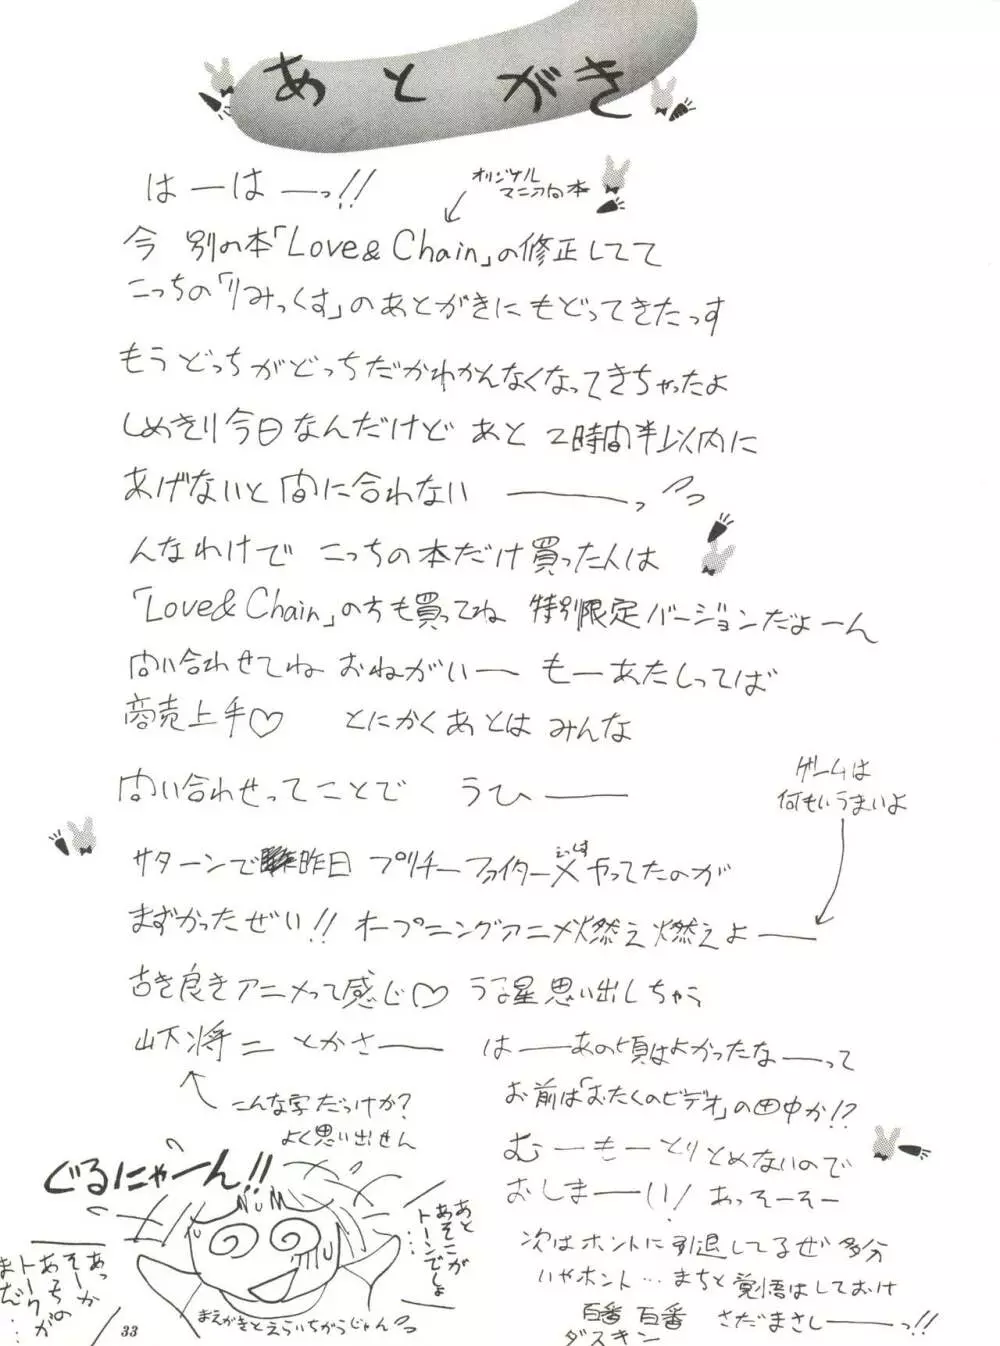 あとがき
はーはーっ!!
オリジナル
マニア向本
今 別の本「Love & Chain」の修正してて
こっちの「りみっくす」のあとがきにもどってきたっす
もうどっちがどっちだかわかんなくなってきちゃったよ
しめきり今日なんだけど あと 2時間半以内に
あげないと間に合わない ――っ
んなわけで こっちの本だけ買った人は
「Love & Chain」の方も買ってね 特別限定バージョンだよーん
問い合わせてね おねがいー もーあたしってば
商売上手♡ とにかくあとは みんな
問い合わせってことで うひ――
ゲームは
何もいうまいよ
サターンで 昨日 プリチーファイターX やってたのが
まずかったぜい!! オープニングアニメ燃え燃えよ――
古き良きアニメって感じ♡ うる星思い出しちゃう
山下将二 とかさ―― はーーあの頃はよかったなーーって
こんな字だっけか?
よく思い出せん
お前は「おたくのビデオ」の田中か!?
むーもーとりとめないので
おしまーーい! あっそーそー
次はホントに引退してるぜ 多分
いやホント…まちと覚悟はしておけ
百番 百番 さだまさしーーっ!!
ダスキン
ぐるにゃーん!!
NuM
あと
あそこが
トーンでしょ
…
あっ
そーか
あっちの
トークが
まだ…
まえがきとえらいちがうじゃんっ
33